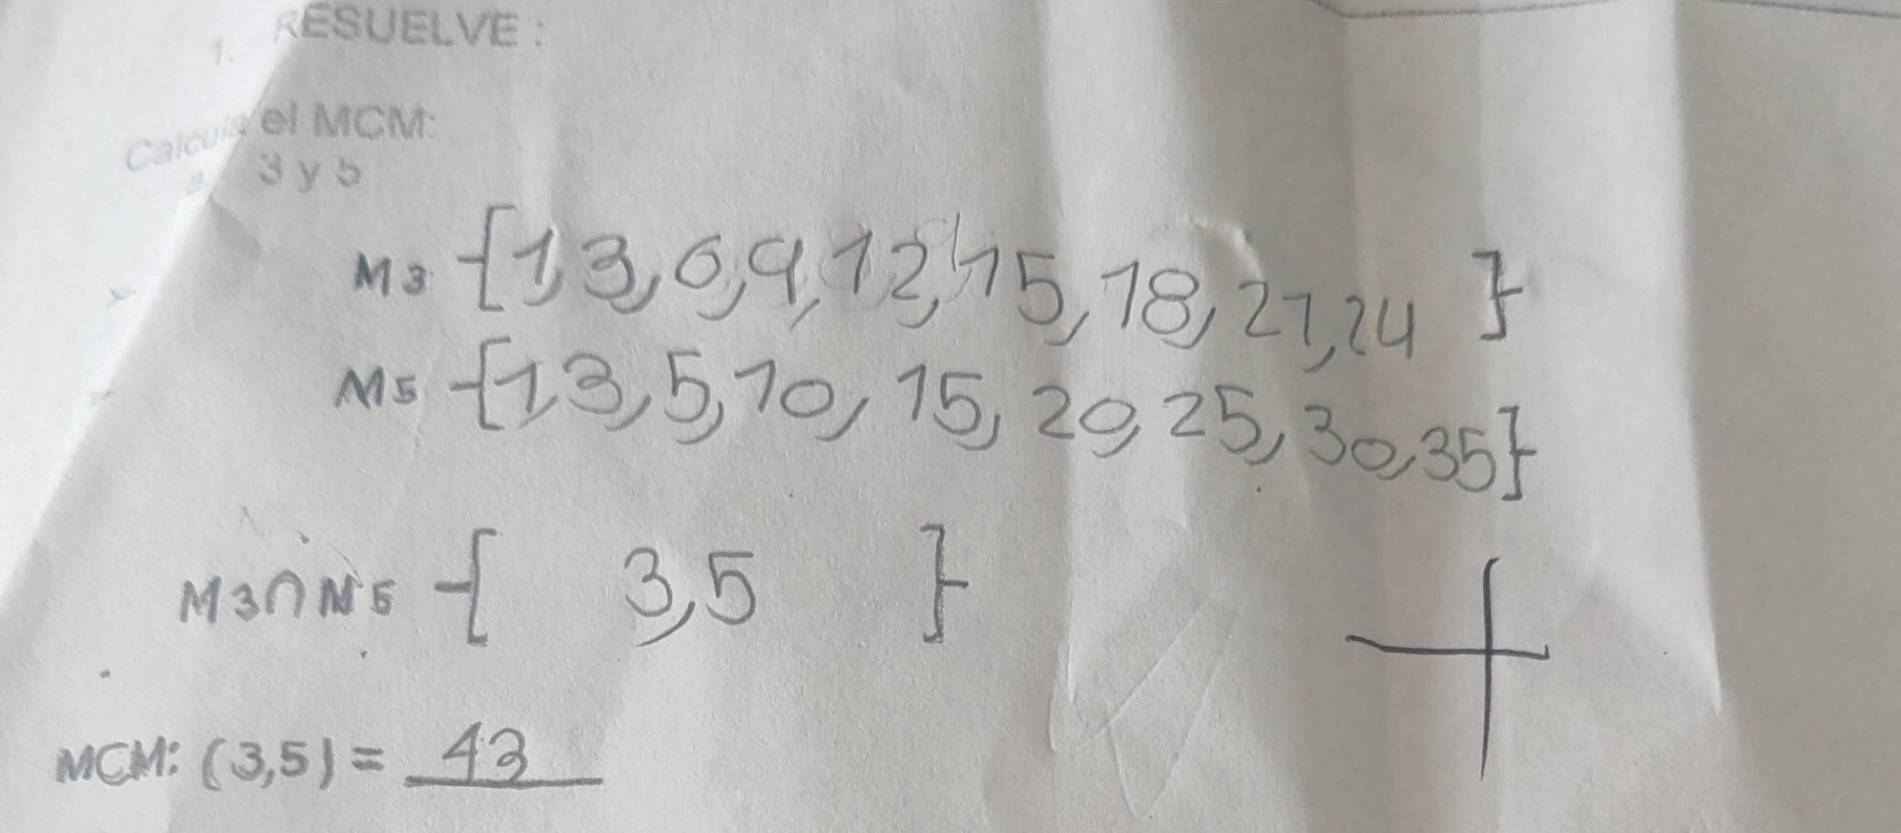 1. RESUELVE :
Calcula el MCM:
a. 3 y 5
M3 {1,3,6,9,12,15,18,21,24 }
M5 {1,3,5,10, 15,20,25,30,35}
M3∩M5 { 3,5 }
MCM: (3,5) = 43